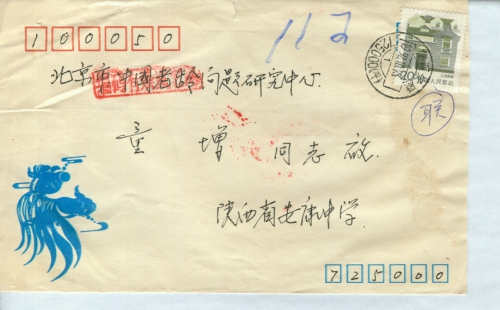 100050
112
北京市中国老龄问题研究中心
联
童 增 同志 启
陕西省安康中学
725000